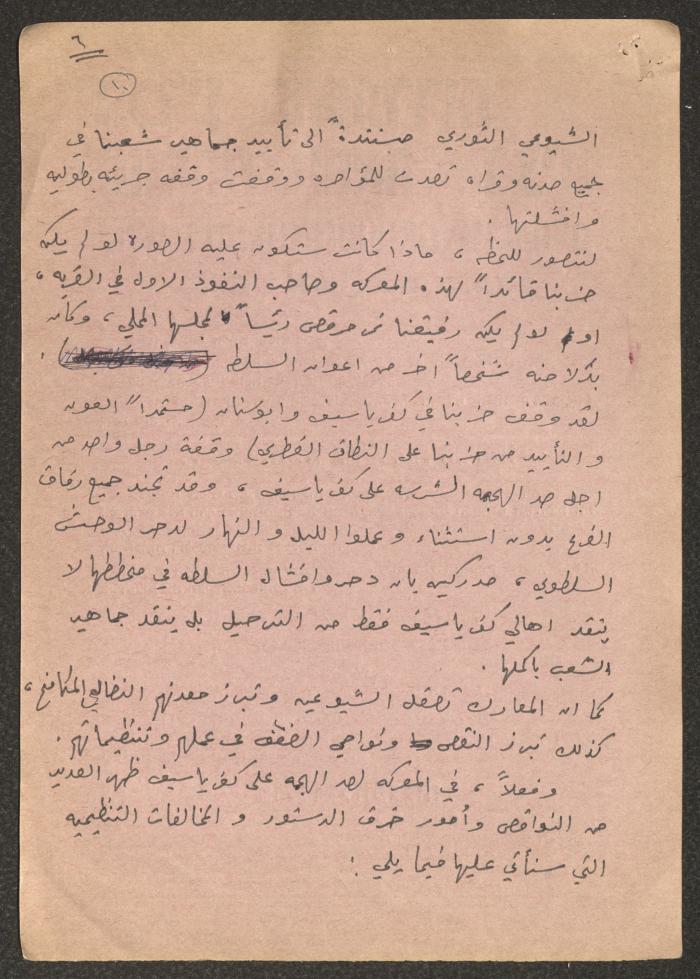 ٦
١٠
الشيوعي الثوري مستندة الى تأييد جماهير شعبنا في
جميع مدنه وقراه تصدت للمؤامره ووقفت وقفه جريئه بطوليه
وافشلتها .
لنتصور للحظه ، ماذا كانت ستكون عليه الصوره لو لم يكن
حزبنا قائداً لهذه المعركه وصاحب النفوذ الاول في القريه ،
او لو لم يكن رفيقنا نمر مرقص رئيساً لمجلسها المحلي ، وكان
بدلا منه شخصاً اخر من اعوان السلطه .
لقد وقف حزبنا في كفر ياسيف وابوسنان (مستمداً العون
والتأييد من حزبنا على النطاق القطري) وقفة رجل واحد من
اجل صد الهجمه الشرسه على كفر ياسيف ، وقد تجند جميع رفاق
الفرع بدون استثناء وعملوا الليل والنهار لدحر الوحش
السلطوي ، مدركين بان دحر وافشال السلطه في مخططها لا
ينقذ اهالي كفر ياسيف فقط من الترحيل بل ينقذ جماهير
الشعب باكملها .
كما ان المعارك تصقل الشيوعيه وتبرز معدنهم النضالي المكافح ،
كذلك تبرز النقص ونواحي الضعف في عملهم وتنظيماتهم .
وفعلاً ، في المعركه لصد الهجمه على كفر ياسيف ظهر العديد
من النواقص وأمور خرق الدستور والمخالفات التنظيميه
التي سنأتي عليها فيما يلي :